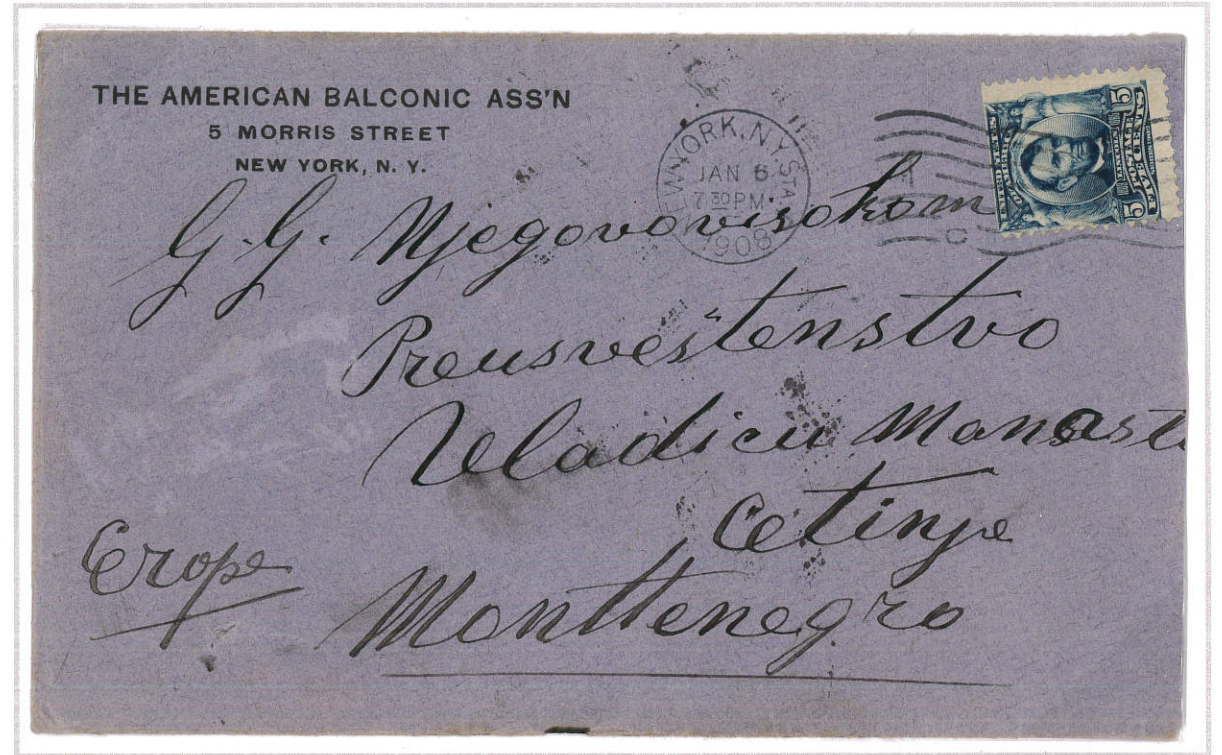 THE AMERICAN BALCONIC ASS'N
5 MORRIS STREET
NEW YORK, N. Y.
NEW YORK, N.Y. STA
JAN 6
7 30 PM
1908
C
5 5
G. G. Njegovovisokom
Preusvestenstvo
Vladicu Manast
Cetinje
Erope
Monttenegro